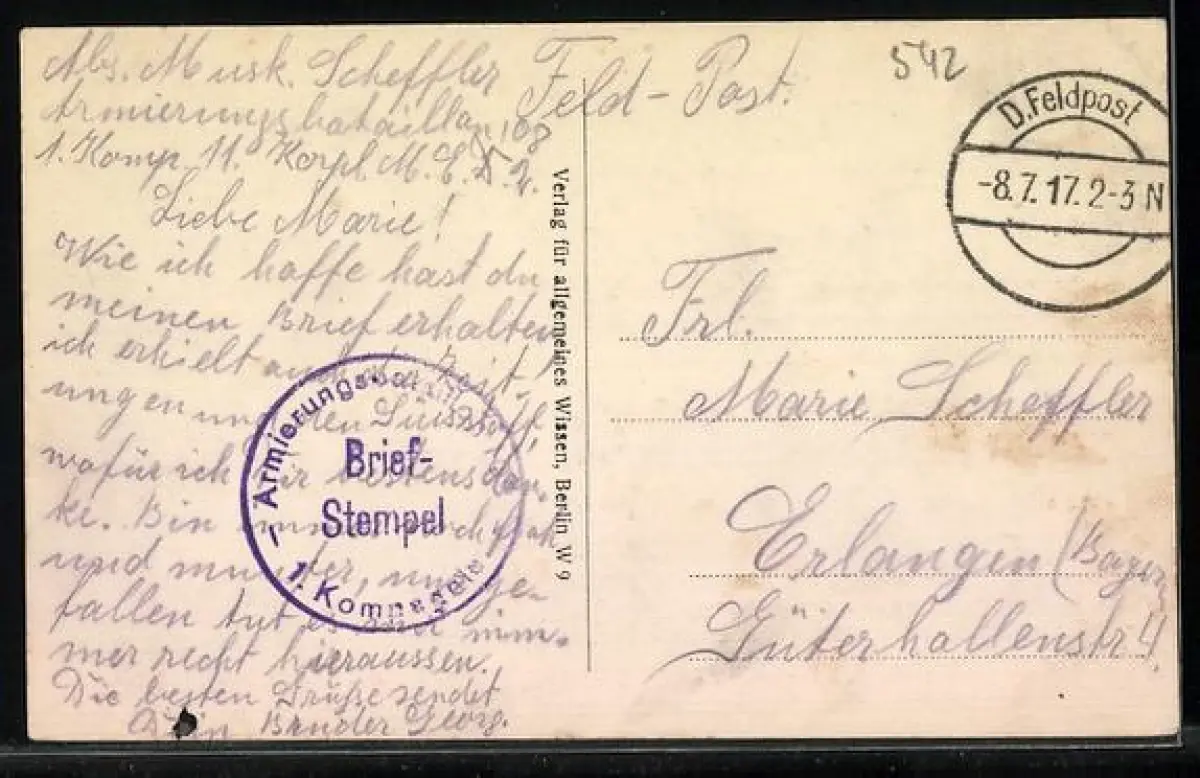 Abs. Musk. Scheffler
Armierungsbataillon 108
1. Komp. 11. Korpl. M. E. D. 2.
Liebe Marie!
Wie ich hoffe hast du
meinen Brief erhalten
ich erhielt Zeit-
ungen und den
wofür ich dir bestens dan-
ke. Bin immer noch
und munter, und ge-
fallen tut es mir im-
mer recht hieraussen.
Die besten Grüße sendet
Dein Bruder Georg.
Feld-Post.
542
D. Feldpost
-8.7.17. 2-3 N
Verlag für allgemeines Wissen, Berlin W 9
Frl.
Marie Scheffler
Erlangen (Bayer
Güterhallenstr 4.
Armierungsbat
Brief-
Stempel
1. Kompagnie